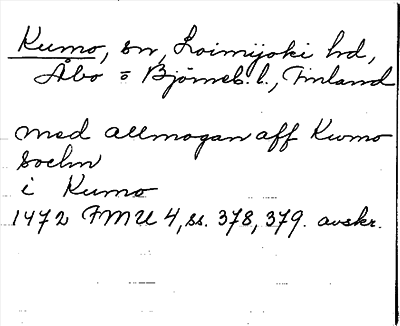 Kumo, sn, Loimijoki hd,
Åbo o Björneb. l., Finland
med allmogan aff Kwmo
sochn
i Kumo
1472 FMU 4, ss. 378, 379. avskr.